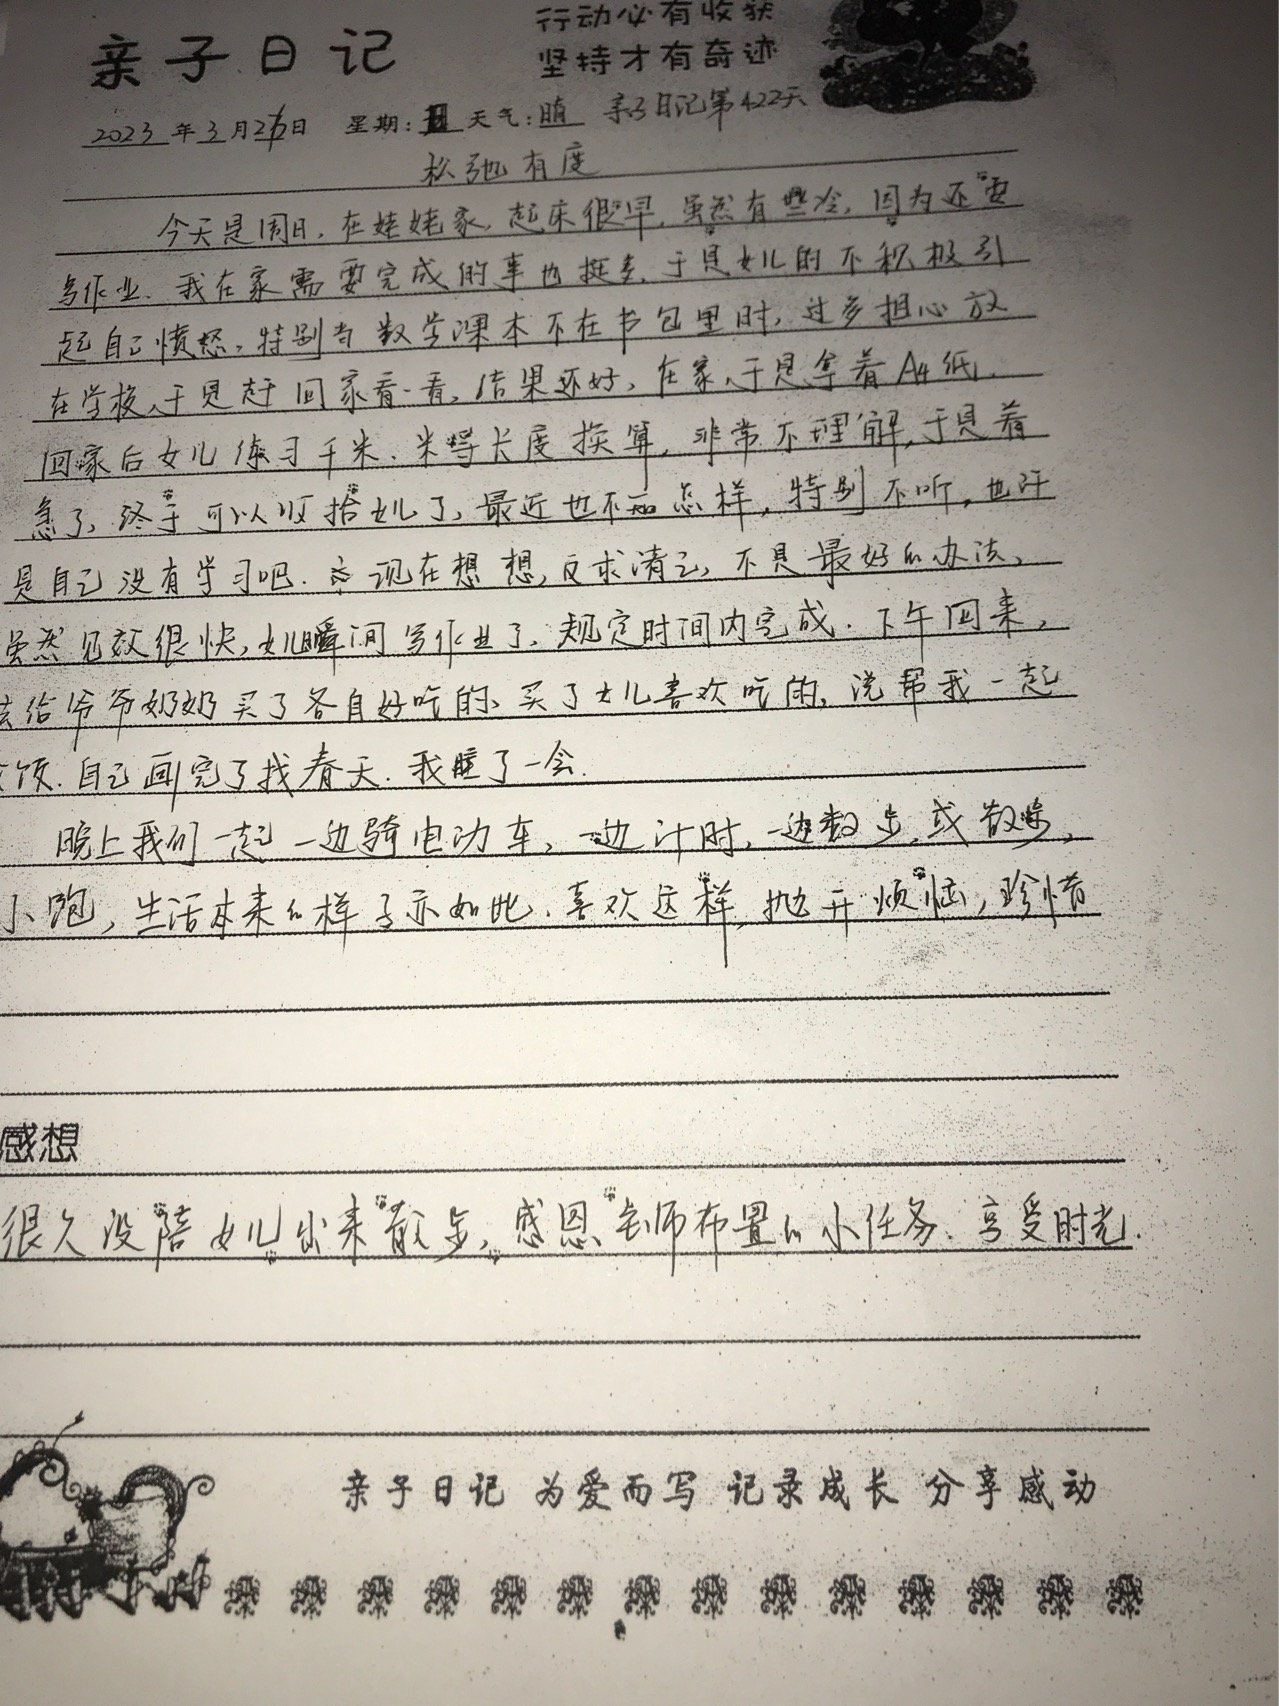 亲子日记
行动必有收获
坚持才有奇迹
2023年3月26日 星期:日 天气:晴 亲子日记第422天
松弛有度
今天是周日,在姥姥家,起床很早,虽然有些冷,因为还要
写作业.我在家需要完成的事也挺多.于是女儿的不积极引
起自己愤怒,特别当数学课本不在书包里时,过多担心放
在学校,于是赶回家看一看,结果还好,在家,于是拿着A4纸.
回家后女儿练习千米.米等长度换算,非常不理解,于是着
急了,终于可以收拾女儿了,最近也不知怎样,特别不听,也许
是自己没有学习吧.现在想想,反求诸己,不是最好的办法,
虽然见效很快,女儿瞬间写作业了,规定时间内完成.下午回来,
去给爷爷奶奶买了各自好吃的,买了女儿喜欢吃的,说帮我一起
饭.自己画完了找春天.我睡了一会.
晚上我们一起一边骑电动车,一边计时,一边数步,或散步,
小跑,生活本来的样子亦如此.喜欢这样,抛开烦恼,珍惜
感想
很久没陪女儿出来散步,感恩老师布置的小任务.享受时光.
亲子日记 为爱而写 记录成长 分享感动